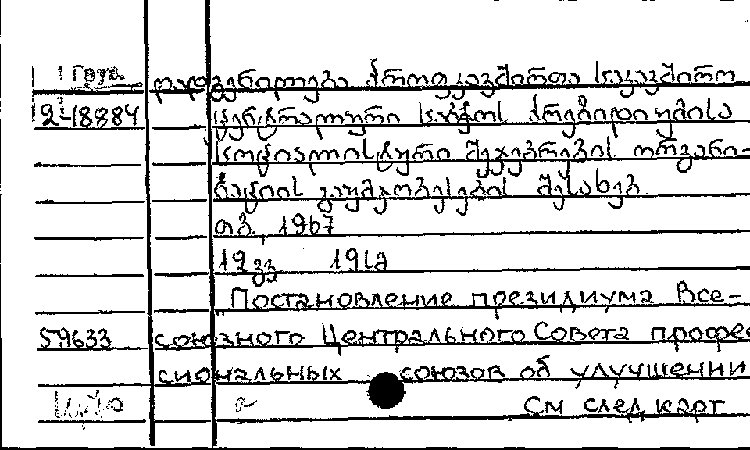 Груз.
დადგენილება პროფკავშირთა საკავშირო
2-18884 ცენტრალური საბჭოს პრეზიდიუმისა
სოციალისტური შეჯიბრების ორგანი-
ზაციის გაუმჯობესების შესახებ
თბ., 1967
19 გვ.
Постановление президиума Все-
59633 союзного Центрального Совета профес
сиональных союзов об улучшении
См след карт